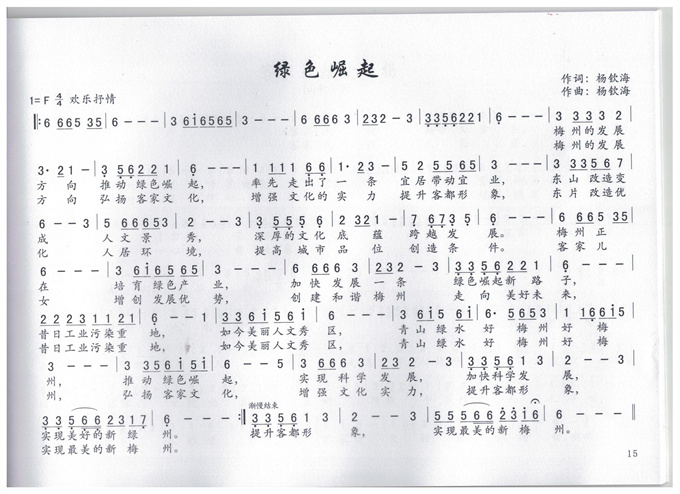 绿色崛起
作词：杨钦海
1=F 4/4 欢乐抒情
作曲：杨钦海
‖: 6 6665 35 | 6 - - - | 3 6i6565 | 3 - - - | 6 6663 | 232 - 3 | 3356221 | 6 - - - | 3 333 2
梅州的发展
梅州的发展
3· 21 - | 3 56221 | 6 - - - | 1 111 66 | 1 - 23 - | 52 5565 | 3 - - - | 3 33567
方向 推动绿色崛起， 率先走出了一条 宜居带动宜业， 东山改造变
方向 弘扬客家文化， 增强文化的实力 提升客都形象， 东片改造优
6 - - 3 | 5 66653 | 2 - - - | 3 5556 | 2 - 321 - | 7 67735 | 6 - - - | 6 66535
成 人文景秀， 深厚的文化底蕴 跨越发展。 梅州正
化 人居环境， 提高城市品位 创造条件。 客家儿
6 - - - | 3 6i6565 | 3 - - - | 6 6663 | 232 - - 3 | 3356221 | 6 - - -
在 培育绿色产业， 加快发展一条 绿色崛起新路子，
女 增创发展优势， 创建和谐梅州 走向美好未来，
22231121 | 2 - - - | 336i56i | 5 - - - | 36i5 6i | 65 35 6i
昔日工业污染重地， 如今美丽人文秀区， 青山绿水好梅州好梅
昔日工业污染重地， 如今美丽人文秀区， 青山绿水好梅州好梅
3 - - - | 3 356ii | 6 - - 5 | 3 6663 | 23 2 - 3 | 33561 | 3 - - -
州， 推动绿色崛起， 实现科学发展， 加快科学发展，
州， 弘扬客家文化， 增强文化实力， 提升客都形象，
渐慢结束
33556 62317 | 6 - - - :‖ 33561 | 2 - - - | 5556 6231̇6 | 6 - - - ‖
实现美好的新绿州。 提升客都形象， 实现最美的新梅州。
实现最美的新梅州。
15